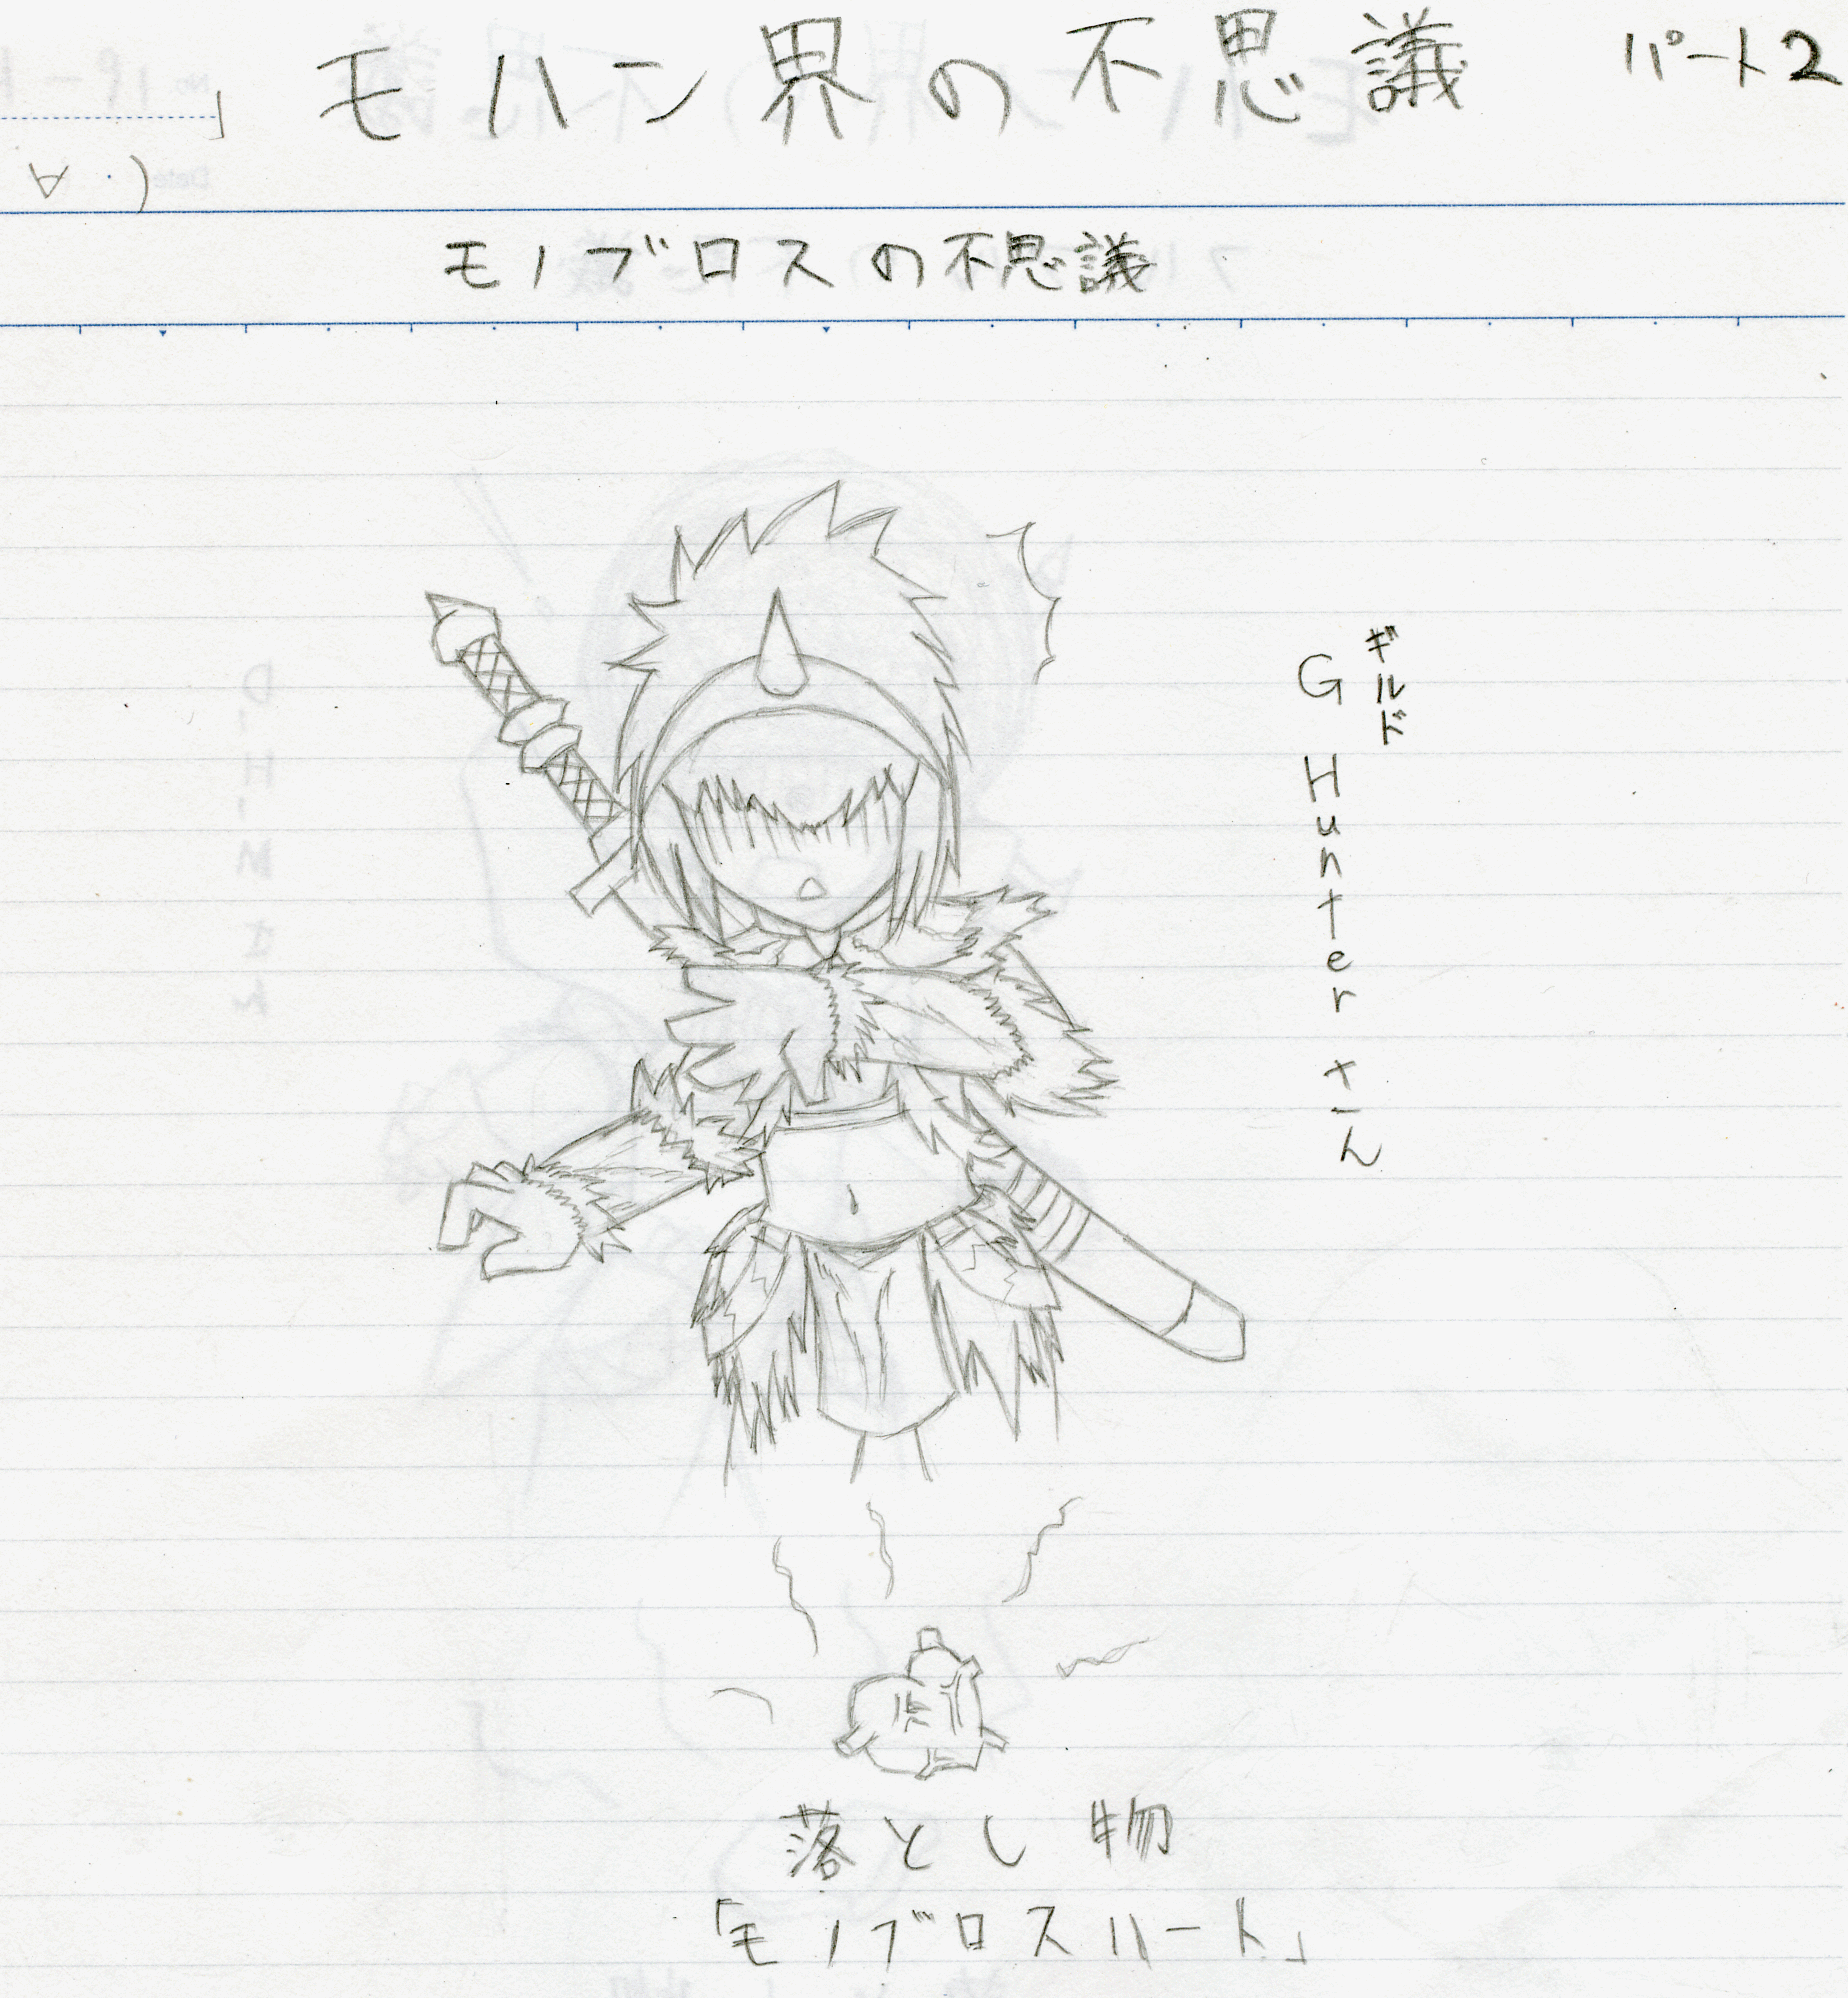 モハン界の不思議 パート2
モノブロスの不思議
ギルド
G Hunter さん
落とし物
「モノブロスハート」